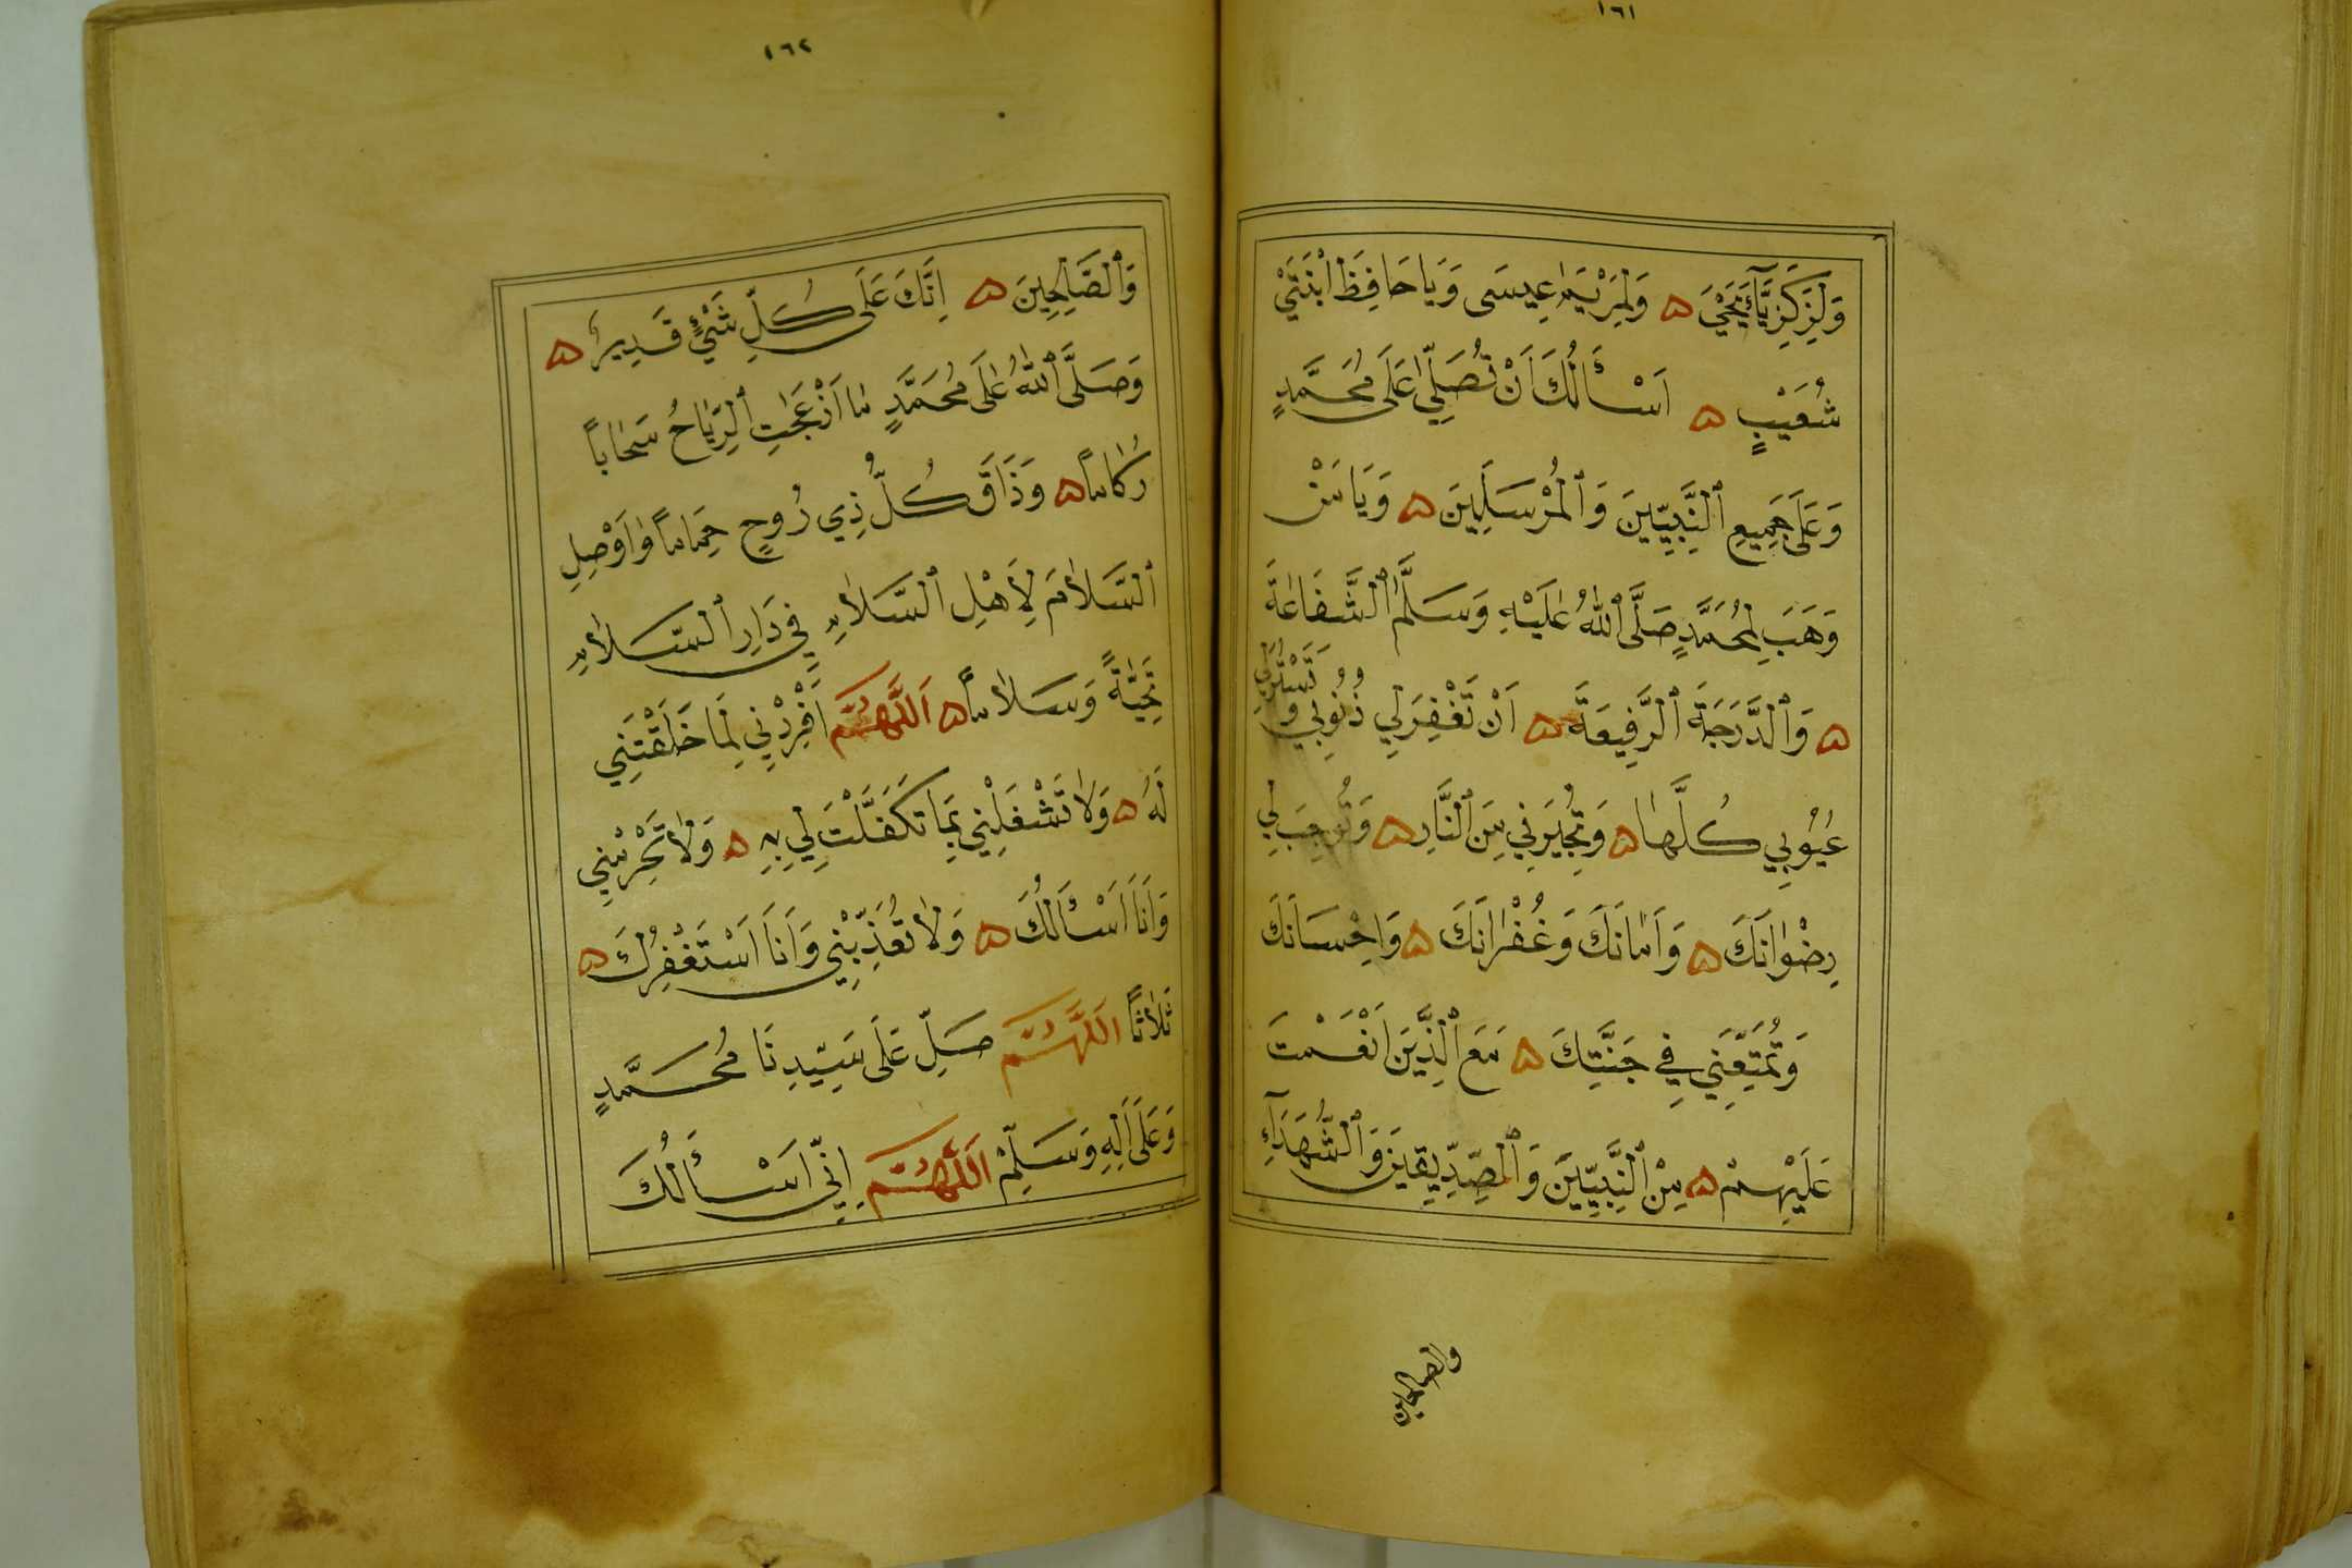 ١٦١
وَلِزَكَرِيَّآءَ يَحْيَى ۞ وَلِمَرْيَمَ عِيسَى وَيَا حَافِظَ ابْنَتَيْ
شُعَيْبٍ ۞ اَسْأَلُكَ اَنْ تُصَلِّيَ عَلَى مُحَمَّدٍ
وَعَلَى جَمِيعِ ٱلنَّبِيِّينَ وَٱلْمُرْسَلِينَ ۞ وَيَا مَنْ
وَهَبَ لِمُحَمَّدٍ صَلَّى ٱللّٰهُ عَلَيْهِ وَسَلَّمَ ٱلشَّفَاعَةَ
۞ وَٱلدَّرَجَةَ ٱلرَّفِيعَةَ ۞ اَنْ تَغْفِرَ لِي ذُنُوبِي وَتَسْتُرَ لِي
عُيُوبِي كُلَّهَا ۞ وَتُجِيرَنِي مِنَ ٱلنَّارِ ۞ وَتُوجِبَ لِي
رِضْوَانَكَ ۞ وَاَمَانَكَ وَغُفْرَانَكَ ۞ وَاِحْسَانَكَ
وَتُمَتِّعَنِي فِي جَنَّتِكَ ۞ مَعَ ٱلَّذِينَ اَنْعَمْتَ
عَلَيْهِمْ ۞ مِنَ ٱلنَّبِيِّينَ وَٱلصِّدِّيقِينَ وَٱلشُّهَدَآءِ
والصالحين
١٦٢
وَٱلصَّالِحِينَ ۞ اِنَّكَ عَلَى كُلِّ شَيْءٍ قَدِيرٌ ۞
وَصَلَّى ٱللّٰهُ عَلَى مُحَمَّدٍ مَا اَزْعَجَتِ ٱلرِّيَاحُ سَحَاباً
رُكَاماً ۞ وَذَاقَ كُلُّ ذِي رُوحٍ حِمَاماً وَاَوْصِلِ
ٱلسَّلَامَ لِاَهْلِ ٱلسَّلَامِ فِي دَارِ ٱلسَّلَامِ
تَحِيَّةً وَسَلَاماً ۞ اَللَّهُمَّ اَفْرِدْنِي لِمَا خَلَقْتَنِي
لَهُ ۞ وَلَا تَشْغَلْنِي بِمَا تَكَفَّلْتَ لِي بِهِ ۞ وَلَا تَحْرِمْنِي
وَاَنَا اَسْأَلُكَ ۞ وَلَا تُعَذِّبْنِي وَاَنَا اَسْتَغْفِرُكَ ۞
ثَلَاثاً اَللَّهُمَّ صَلِّ عَلَى سَيِّدِنَا مُحَمَّدٍ
وَعَلَى اٰلِهِ وَسَلِّمْ اَللَّهُمَّ اِنِّي اَسْأَلُكَ